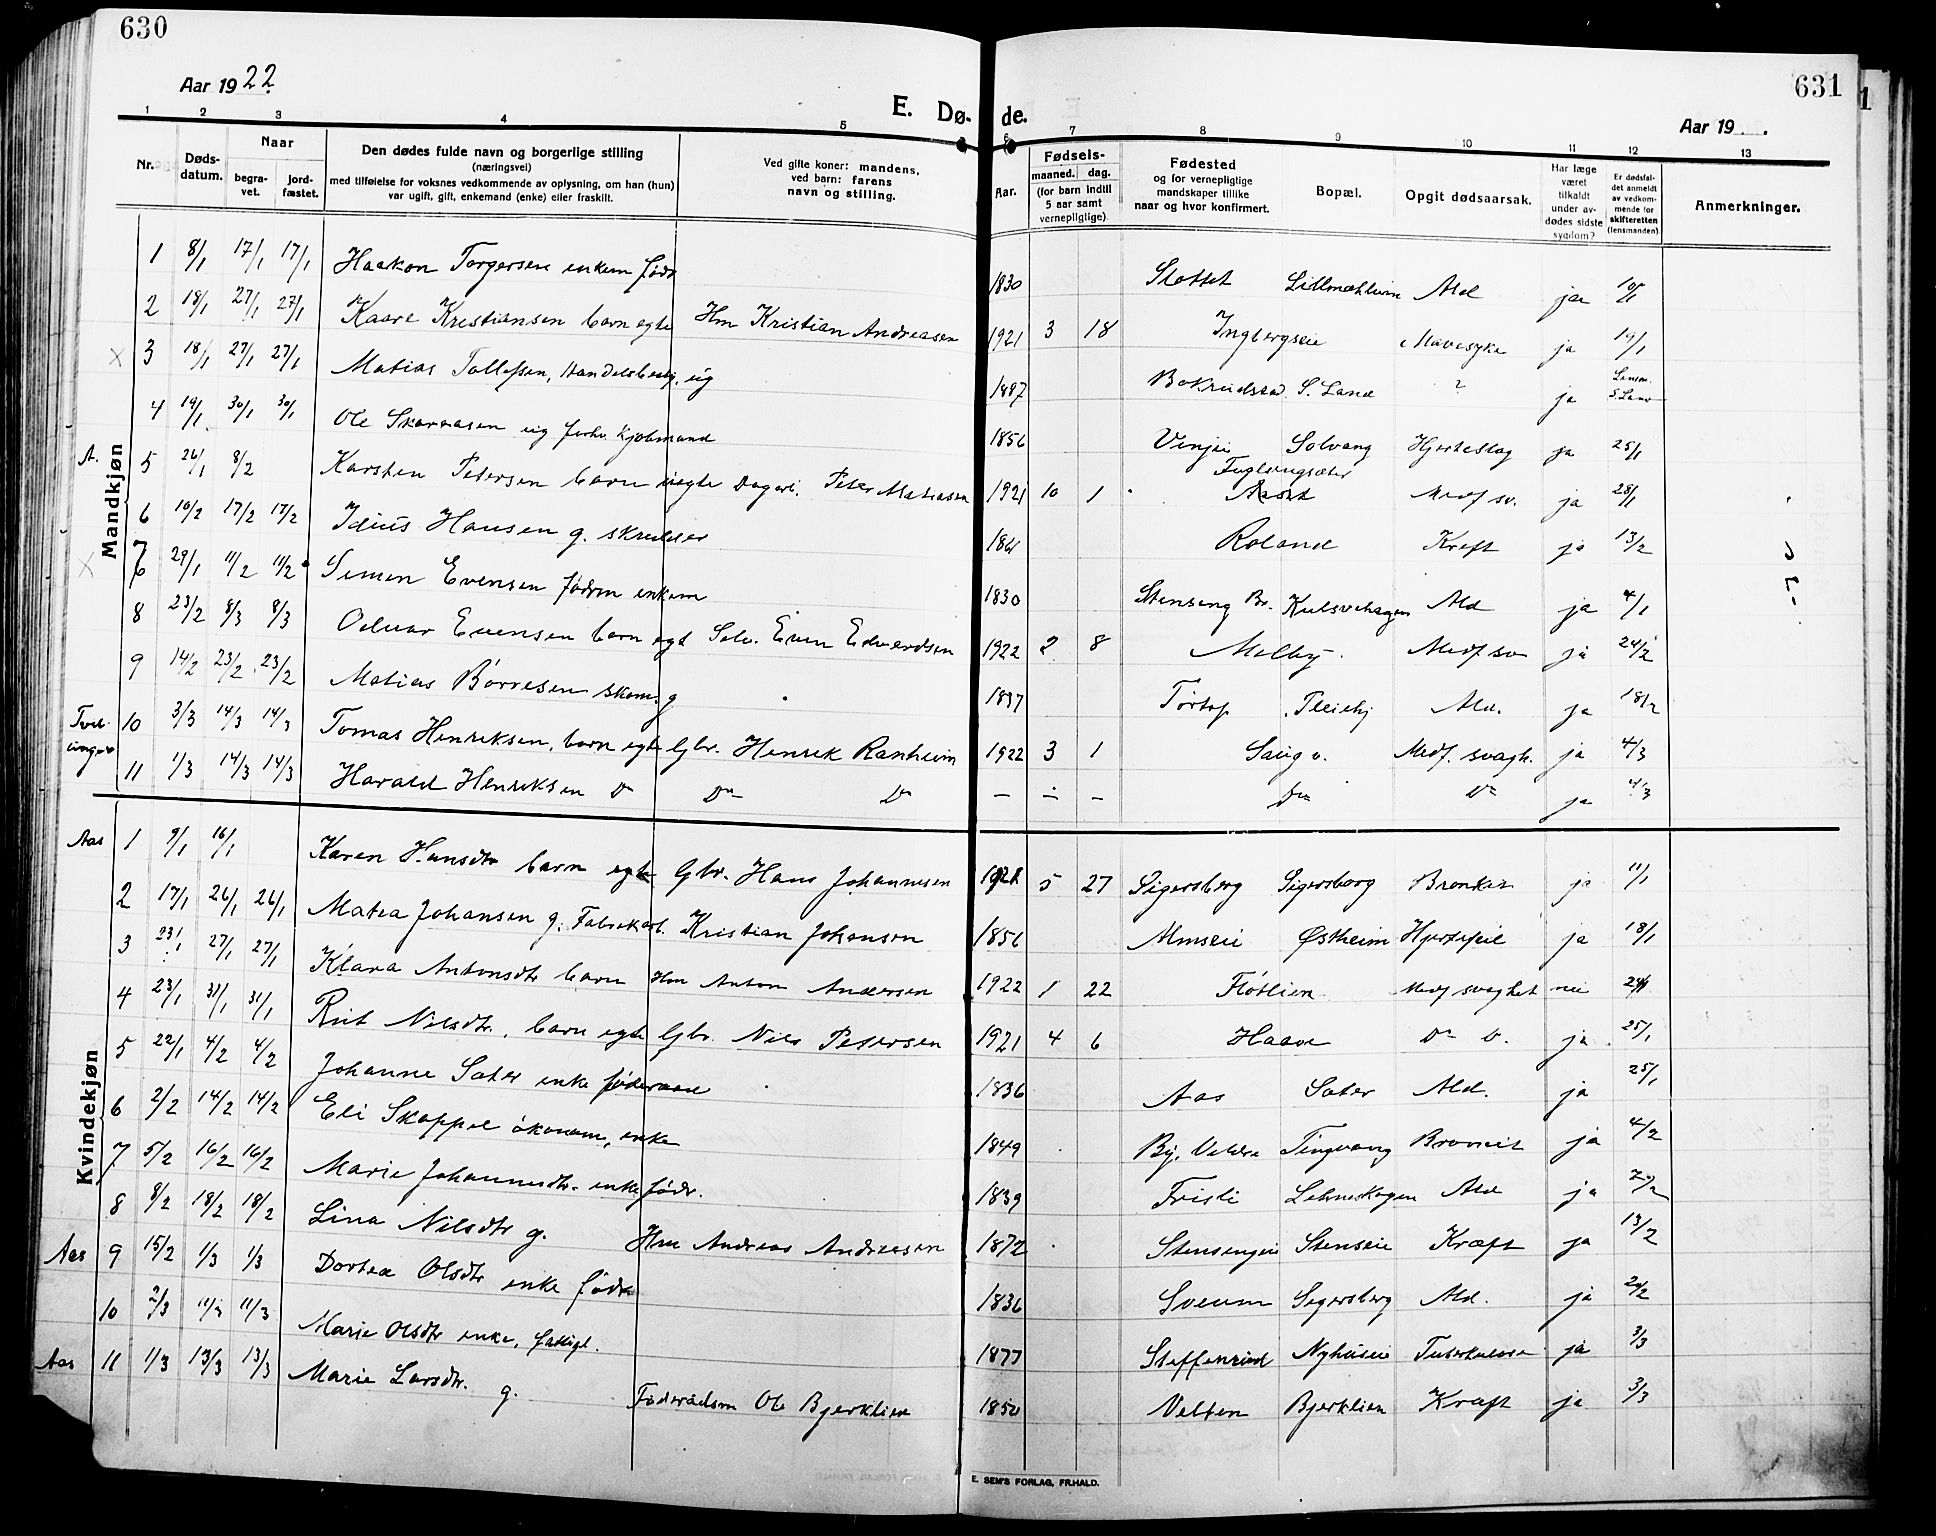 630
Aar 1922.
E. Dø- de.
631
Aar 19 .
1 2 3 4 5 6 7 8 9 10 11 12 13
Nr. Døds-datum. Naar begra-vet. jord-fæstet. Den dødes fulde navn og borgerlige stilling (næringsvei) med tilføielse for voksnes vedkommende av oplysning, om han (hun) var ugift, gift, enkemand (enke) eller fraskilt. Ved gifte koner: mandens, ved barn: farens navn og stilling. Aar. Fødsels- maaned. dag. (for barn indtil 5 aar samt vernepligtige). Fødested og for vernepligtige mandskaper tillike naar og hvor konfirmert. Bopæl. Opgit dødsaarsak. Har læge været tilkaldt under av-dødes sidste sygdom? Er dødsfal-det anmeldt av vedkom-mende for skifteretten (lensmanden) Anmerkninger.
Mandkjøn
1 8/1 17/1 17/1 Haakon Torgersen enkem födr 1830 Slottet Ald ja 10/1
2 18/1 27/1 27/1 Kaare Kristiansen barn egte Hm Kristian Andreasen 1921 3 18 Ingbergseie Mavesyke ja 19/1
x 3 18/1 27/1 27/1 Matias Tollefsen, Handelsbestj. ug 1887 S. Land ? ja Lensm. S. Land
4 19/1 30/1 30/1 Ole Skaraasen ug forhv. kjøbmand 1856 Solvang Hjerteslag ja 25/1
A. 5 26/1 8/2 Karsten Petersen barn uegte Dagarb. Peter Matiasen 1921 10 1 Fuglsangsæter Medf sv. ja 28/1
6 10/2 17/2 17/2 Julius Hansen g. skredder 1861 Roland Kreft ja 13/2
x 7 29/1 11/2 11/2 Simen Evensen födrm enkem 1830 Stenseng Br. Kulsvehagen Ald ja 4/1
8 23/2 8/3 8/3 Odvar Evensen barn egt Selv. Even Edvardsen 1922 2 8 Melby. Medf sv ja 24/2
9 14/2 23/2 23/2 Matias Börresen skom. g 1837 Ald. ja 18/2
Tvil-
linger 10 3/3 14/3 14/3 Tomas Henriksen, barn egte Gbr. Henrik Ranheim 1922 3 1 Saug v. Medf. svagh. ja 4/3
11 1/3 14/3 14/3 Harald Henriksen Do Do Do — — — Do Do ja 4/3
Kvindekjøn
Aas 1 9/1 16/1 Karen Hansdtr barn egte Gbr. Hans Johannesen 1921 5 27 Sigersberg Sigersberg Bronkit ja 11/1
2 17/1 26/1 26/1 Matea Johansen g. Fabrikarb. Kristian Johansen 1856 Almseie Østheim Hjertefeil ja 18/1
3 23/1 27/1 27/1 Klara Antonsdtr barn Hm Anton Andersen 1922 1 22 Flötlien Medf svaghet nei 24/1
4 23/1 31/1 31/1 Rut Nilsdtr. barn egte Gbr. Nils Petersen 1921 4 6 Haave Do D. ja 25/1
5 22/1 4/2 4/2 Johanne Sater enke föderaad 1836 Aas Sater Ald. ja 25/1
6 2/2 14/2 14/2 Eli Skappel ökonom, enke 1849 By, Valdre Tingvang Bronkit ja 4/2
7 5/2 16/2 16/2 Marie Johannesdtr. enke födr. 1839 Fristi Lehneskogen Ald ja 7/2
8 8/2 18/2 18/2 Lina Nilsdtr g. Hm Andreas Andreasen 1872 Stensengeie Stenseie Kræft ja 13/2
Aas 9 15/2 1/3 1/3 Dortea Olsdtr enke födr 1836 Sveum Segersberg Ald. ja 20/2
10 2/3 11/3 11/3 Marie Olsdtr enke, fattigl. 1877 Steffenrud Nyhuseie Tuberkulose ja 3/3
Aas 11 1/3 13/3 13/3 Marie Larsdtr. g. Föderådsm Ole Bjerklien 1850 Velten Bjerklien Kræft ja 3/3
E. SEM'S FORLAG, FR.HALD.